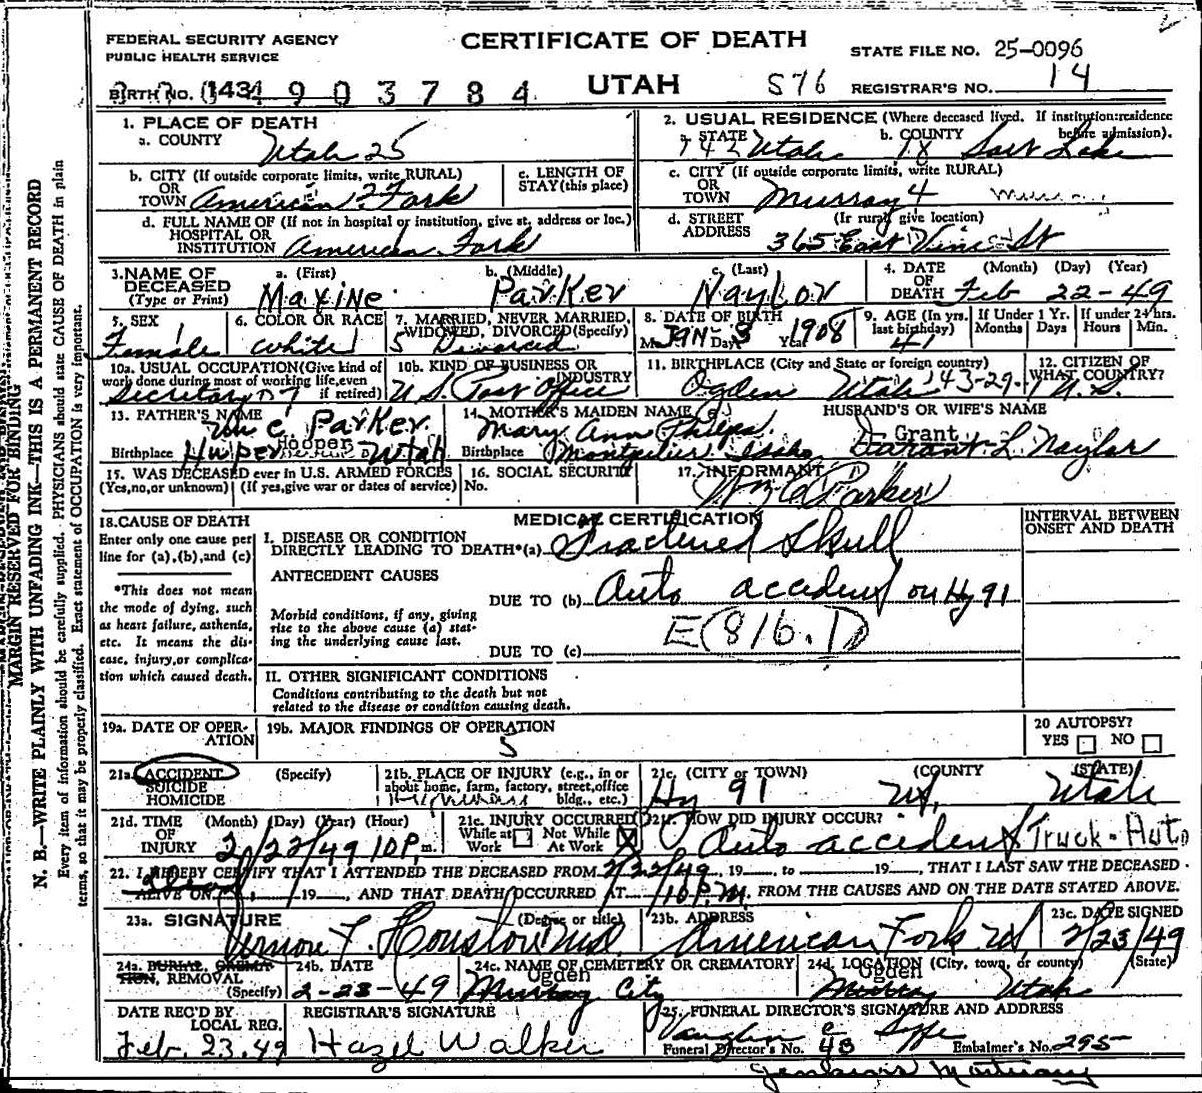 FEDERAL SECURITY AGENCY
PUBLIC HEALTH SERVICE
CERTIFICATE OF DEATH
UTAH
STATE FILE NO. 25-0096
576
REGISTRAR'S NO. 14
BIRTH NO. 1434 903784
MARGIN RESERVED FOR BINDING
N. B.—WRITE PLAINLY WITH UNFADING INK—THIS IS A PERMANENT RECORD
Every item of information should be carefully supplied. PHYSICIANS should state CAUSE OF DEATH in plain
terms, so that it may be properly classified. Exact statement of OCCUPATION is very important.
1. PLACE OF DEATH
a. COUNTY Utah 25
2. USUAL RESIDENCE (Where deceased lived. If institution:residence before admission).
a. STATE Utah b. COUNTY 18 Salt Lake
b. CITY (If outside corporate limits, write RURAL)
OR TOWN American Fork
c. LENGTH OF STAY (this place)
c. CITY (If outside corporate limits, write RURAL)
OR TOWN Murray 4
d. FULL NAME OF (If not in hospital or institution, give st. address or loc.)
HOSPITAL OR INSTITUTION American Fork
d. STREET ADDRESS (If rural, give location)
365 East Vine St
3. NAME OF DECEASED (Type or Print)
a. (First) Maxine b. (Middle) Parker c. (Last) Naylor
4. DATE OF DEATH (Month) (Day) (Year)
Feb 22-49
5. SEX Female
6. COLOR OR RACE White
7. MARRIED, NEVER MARRIED, WIDOWED, DIVORCED (Specify)
5 Divorced
8. DATE OF BIRTH
Mo. JAN. Day 3 Year 1908
9. AGE (In yrs. last birthday) 41
If Under 1 Yr. Months Days
If under 24 hrs. Hours Min.
10a. USUAL OCCUPATION (Give kind of work done during most of working life, even if retired)
Secretary
10b. KIND OF BUSINESS OR INDUSTRY
U.S. Post Office
11. BIRTHPLACE (City and State or foreign country)
Ogden Utah 143-29
12. CITIZEN OF WHAT COUNTRY? U.S.
13. FATHER'S NAME
Wm C Parker
Birthplace Huper Hooper Utah
14. MOTHER'S MAIDEN NAME
Mary Ann Phelps
Birthplace Montpelier Idaho
HUSBAND'S OR WIFE'S NAME
Grant
Durant L. Naylor
15. WAS DECEASED ever in U.S. ARMED FORCES
(Yes, no, or unknown) (If yes, give war or dates of service)
16. SOCIAL SECURITY No.
17. INFORMANT
Wm C Parker
18. CAUSE OF DEATH
Enter only one cause per line for (a), (b), and (c)
*This does not mean the mode of dying, such as heart failure, asthenia, etc. It means the disease, injury, or complication which caused death.
MEDICAL CERTIFICATION
INTERVAL BETWEEN ONSET AND DEATH
I. DISEASE OR CONDITION DIRECTLY LEADING TO DEATH*(a) Fractured Skull
ANTECEDENT CAUSES
DUE TO (b) Auto accident on Hy 91
Morbid conditions, if any, giving rise to the above cause (a) stating the underlying cause last.
E(816.1)
DUE TO (c)
II. OTHER SIGNIFICANT CONDITIONS
Conditions contributing to the death but not related to the disease or condition causing death.
19a. DATE OF OPERATION
19b. MAJOR FINDINGS OF OPERATION
5
20 AUTOPSY?
YES NO
21a. ACCIDENT (Specify)
SUICIDE
HOMICIDE
21b. PLACE OF INJURY (e.g., in or about home, farm, factory, street, office bldg., etc.)
Highway
21c. (CITY or TOWN) (COUNTY) (STATE)
Hy 91 Ut, Utah
21d. TIME OF INJURY (Month) (Day) (Year) (Hour)
2/22/49 10 P. m.
21e. INJURY OCCURRED
While at Work Not While At Work
21f. HOW DID INJURY OCCUR?
Auto accident Truck-Auto
22. I HEREBY CERTIFY THAT I ATTENDED THE DECEASED FROM 2/22/49, 19 , to 19 , THAT I LAST SAW THE DECEASED
ALIVE ON , 19 , AND THAT DEATH OCCURRED AT 10 P.M. FROM THE CAUSES AND ON THE DATE STATED ABOVE.
23a. SIGNATURE (Degree or title)
Vernon F. Houston M.D.
23b. ADDRESS
American Fork Ut
23c. DATE SIGNED
2/23/49
24a. BURIAL, CREMATION, REMOVAL (Specify)
24b. DATE
2-23-49
24c. NAME OF CEMETERY OR CREMATORY
Ogden
Murray City
24d. LOCATION (City, town, or county) (State)
Ogden
Murray Utah
DATE REC'D BY LOCAL REG.
Feb. 23, 49
REGISTRAR'S SIGNATURE
Hazel Walker
25. FUNERAL DIRECTOR'S SIGNATURE AND ADDRESS
Vaughn
Funeral Director's No. 43 Embalmer's No. 295
Mortuary